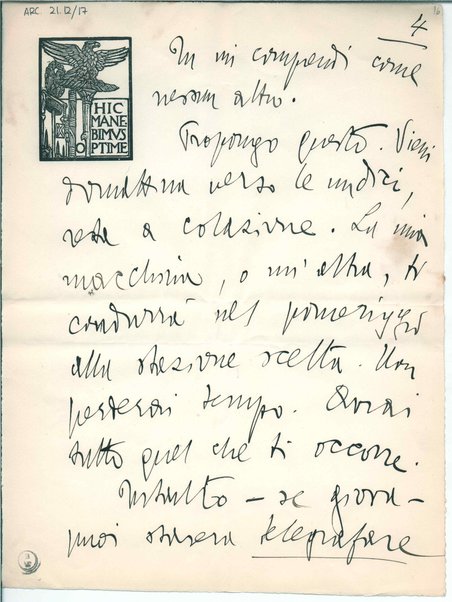 ARC. 21.12/17
16
4
HIC
MANE
BIMVS
OPTIME
Tu mi comprendi come
nessun altro.
Propongo questo. Vieni
domattina verso le undici,
resta a colazione. La mia
macchina, o un'altra, ti
condurrà nel pomeriggio
alla stazione scelta. Non
perderai tempo. Avrai
tutto quel che ti occorre.
Intanto – se giova –
puoi stasera telegrafare